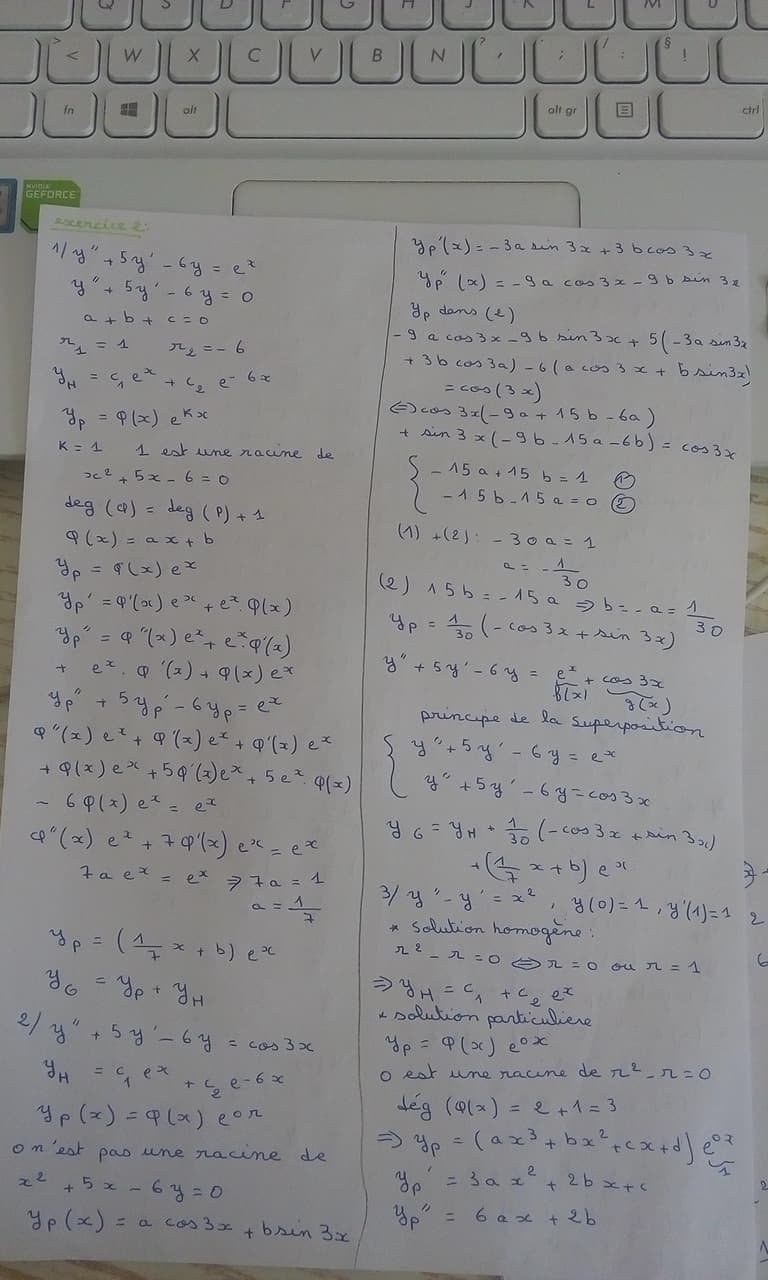 Q S D F G H J K L M Ù
> < W X C V B N ? , . ; / : § !
fn alt alt gr ctrl
NVIDIA
GEFORCE
exercice 2:
1/ y'' + 5y' - 6y = e^x
y'' + 5y' - 6y = 0
a + b + c = 0
r_1 = 1 r_2 = -6
y_H = c_1 e^x + c_2 e^-6x
y_p = φ(x) e^Kx
K = 1 1 est une racine de
x² + 5x - 6 = 0
deg (φ) = deg (P) + 1
φ(x) = ax + b
y_p = φ(x) e^x
y_p' = φ'(x) e^x + e^x. φ(x)
y_p'' = φ''(x) e^x + e^x. φ'(x)
+ e^x. φ'(x) + φ(x) e^x
y_p'' + 5y_p' - 6y_p = e^x
φ''(x) e^x + φ'(x) e^x + φ'(x) e^x
+ φ(x) e^x + 5φ'(x) e^x + 5e^x. φ(x)
- 6φ(x) e^x = e^x
φ''(x) e^x + 7φ'(x) e^x = e^x
7a e^x = e^x ⇒ 7a = 1
a = 1/7
y_p = (1/7 x + b) e^x
y_G = y_p + y_H
2/ y'' + 5y' - 6y = cos 3x
y_H = c_1 e^x + c_2 e^-6x
y_p(x) = φ(x) e^0x
0 n'est pas une racine de
x² + 5x - 6y = 0
y_p(x) = a cos 3x + b sin 3x
y_p'(x) = -3a sin 3x + 3b cos 3x
y_p''(x) = -9a cos 3x - 9b sin 3x
y_p dans (2)
-9a cos 3x - 9b sin 3x + 5(-3a sin 3x
+ 3b cos 3a) - 6(a cos 3x + b sin 3x)
= cos(3x)
⇔ cos 3x(-9a + 15b - 6a)
+ sin 3x(-9b - 15a - 6b) = cos 3x
{ -15a + 15b = 1 ①
-15b - 15a = 0 ②
(1) + (2): -30a = 1
a = -1/30
(2) 15b = -15a ⇒ b = -a = 1/30
y_p = 1/30 (-cos 3x + sin 3x)
y'' + 5y' - 6y = e^x + cos 3x
f(x) g(x)
principe de la superposition
{ y'' + 5y' - 6y = e^x
y'' + 5y' - 6y = cos 3x
y_G = y_H + 1/30 (-cos 3x + sin 3x)
+ (1/7 x + b) e^x
3/ y'' - y' = x², y(0) = 1, y'(1) = 1
* solution homogène:
r² - r = 0 ⇔ r = 0 ou r = 1
⇒ y_H = c_1 + c_2 e^x
* solution particulière
y_p = φ(x) e^0x
0 est une racine de r² - r = 0
dég (φ(x) = 2 + 1 = 3
⇒ y_p = (ax³ + bx² + cx + d) e^0x
1
y_p' = 3ax² + 2bx + c
y_p'' = 6ax + 2b